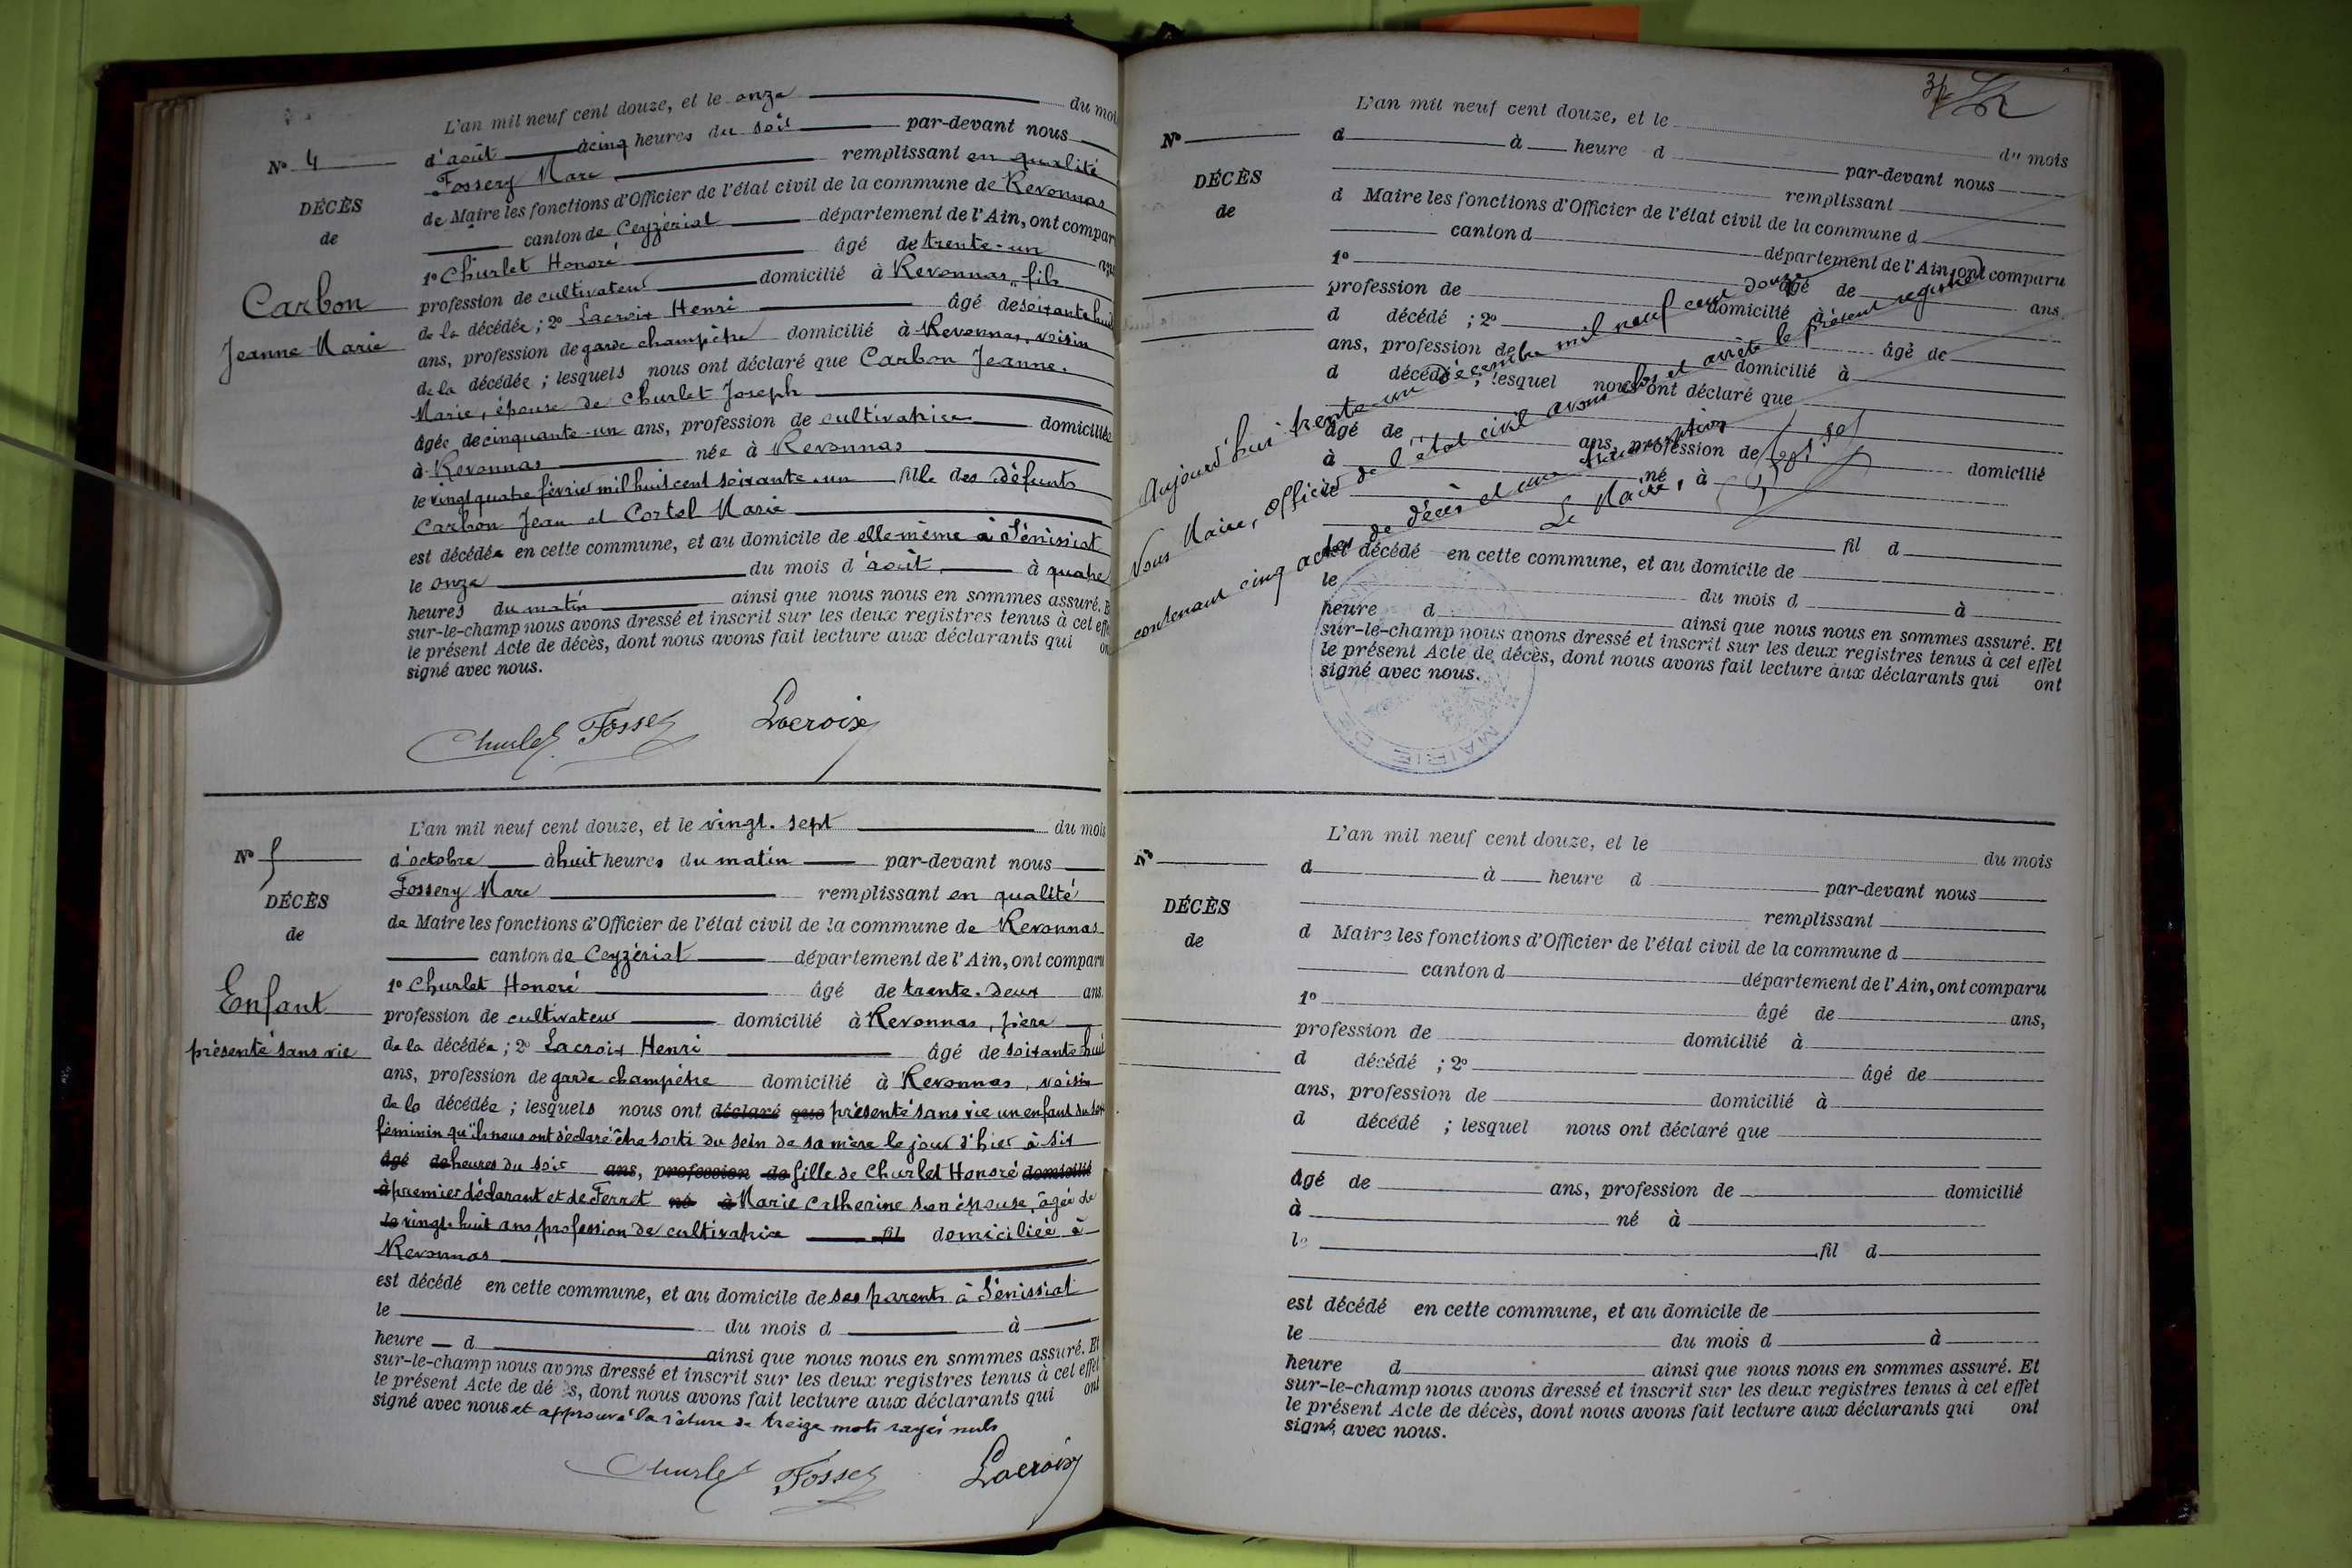 L'an mil neuf cent douze, et le onze du mois
N° 4
d'août à cinq heures du soir par-devant nous
Fossery Marc remplissant en qualité
DÉCÈS
de Maire les fonctions d'Officier de l'état civil de la commune de Revonnas
de
canton de Ceyzériat département de l'Ain, ont compar
1° Churlet Honoré âgé de trente-un ans
Carbon
profession de cultivateur domicilié à Revonnas, fils
de la décédée ; 2° Lacroix Henri âgé de soixante huit
Jeanne Marie
ans, profession de garde champêtre domicilié à Revonnas, voisin
de la décédée ; lesquels nous ont déclaré que Carbon Jeanne.
Marie, épouse de Churlet Joseph
âgée de cinquante-un ans, profession de cultivatrice domiciliée
à Revonnas née à Revonnas
le vingt quatre février mil huit cent soixante-un fille des défunts
Carbon Jean et Cortel Marie
est décédée en cette commune, et au domicile de elle même à Sénissiat
le onze du mois d'août à quatre
heures du matin ainsi que nous nous en sommes assuré. E
sur-le-champ nous avons dressé et inscrit sur les deux registres tenus à cet effe
le présent Acte de décès, dont nous avons fait lecture aux déclarants qui on
signé avec nous.
Churlet Fossery Lacroix
L'an mil neuf cent douze, et le vingt-sept du mois
N° 5
d'octobre à huit heures du matin par-devant nous
Fossery Marc remplissant en qualité
DÉCÈS
de Maire les fonctions d'Officier de l'état civil de la commune de Revonnas
de
canton de Ceyzériat département de l'Ain, ont comparu
1° Churlet Honoré âgé de trente-deux ans
Enfant
profession de cultivateur domicilié à Revonnas, père
présenté sans vie
de la décédée ; 2° Lacroix Henri âgé de soixante-huit
ans, profession de garde champêtre domicilié à Revonnas, voisin
de la décédée ; lesquels nous ont déclaré que présenté sans vie un enfant du sexe
féminin qu'ils nous ont déclaré être sorti du sein de sa mère le jour d'hier à six
âgé de heures du soir ans, profession de fille de Churlet Honoré domicilié
à premier déclarant et de Ferret né à Marie Catherine son épouse, âgée de
le vingt-huit ans, profession de cultivatrice fil domiciliée à
Revonnas
est décédé en cette commune, et au domicile de ses parents à Sénissiat
le du mois d à
heure d ainsi que nous nous en sommes assuré. Et
sur-le-champ nous avons dressé et inscrit sur les deux registres tenus à cet effet
le présent Acte de décès, dont nous avons fait lecture aux déclarants qui ont
signé avec nous et approuvé la rature de treize mots rayés nuls
Churlet Fossery Lacroix
L'an mil neuf cent douze, et le du mois
N°
d à heure d par-devant nous
remplissant
DÉCÈS
d Maire les fonctions d'Officier de l'état civil de la commune d
de
canton d département de l'Ain, ont comparu
1° âgé de ans
profession de domicilié à
d décédé ; 2° âgé de
ans, profession de domicilié à
d décédé ; lesquel nous ont déclaré que
âgé de ans, profession de domicilié
à né à
fil d
est décédé en cette commune, et au domicile de
le du mois d à
heure d ainsi que nous nous en sommes assuré. Et
sur-le-champ nous avons dressé et inscrit sur les deux registres tenus à cet effet
le présent Acte de décès, dont nous avons fait lecture aux déclarants qui ont
signé avec nous.
Aujourd'hui trente-un décembre mil neuf cent douze
Nous Maire, officier de l'état civil avons clos et arrêté le présent registre
contenant cinq actes de décès et une transcription
Le Maire,
MAIRIE DE
L'an mil neuf cent douze, et le du mois
N°
d à heure d par-devant nous
remplissant
DÉCÈS
d Maire les fonctions d'Officier de l'état civil de la commune d
de
canton d département de l'Ain, ont comparu
1° âgé de ans,
profession de domicilié à
d décédé ; 2° âgé de
ans, profession de domicilié à
d décédé ; lesquel nous ont déclaré que
âgé de ans, profession de domicilié
à né à
le fil d
est décédé en cette commune, et au domicile de
le du mois d à
heure d ainsi que nous nous en sommes assuré. Et
sur-le-champ nous avons dressé et inscrit sur les deux registres tenus à cet effet
le présent Acte de décès, dont nous avons fait lecture aux déclarants qui ont
signé, avec nous.